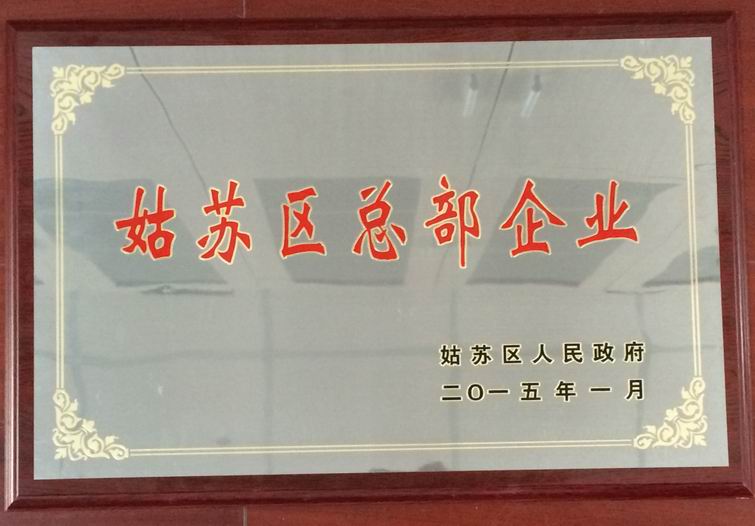 姑苏区总部企业
姑苏区人民政府
二〇一五年一月